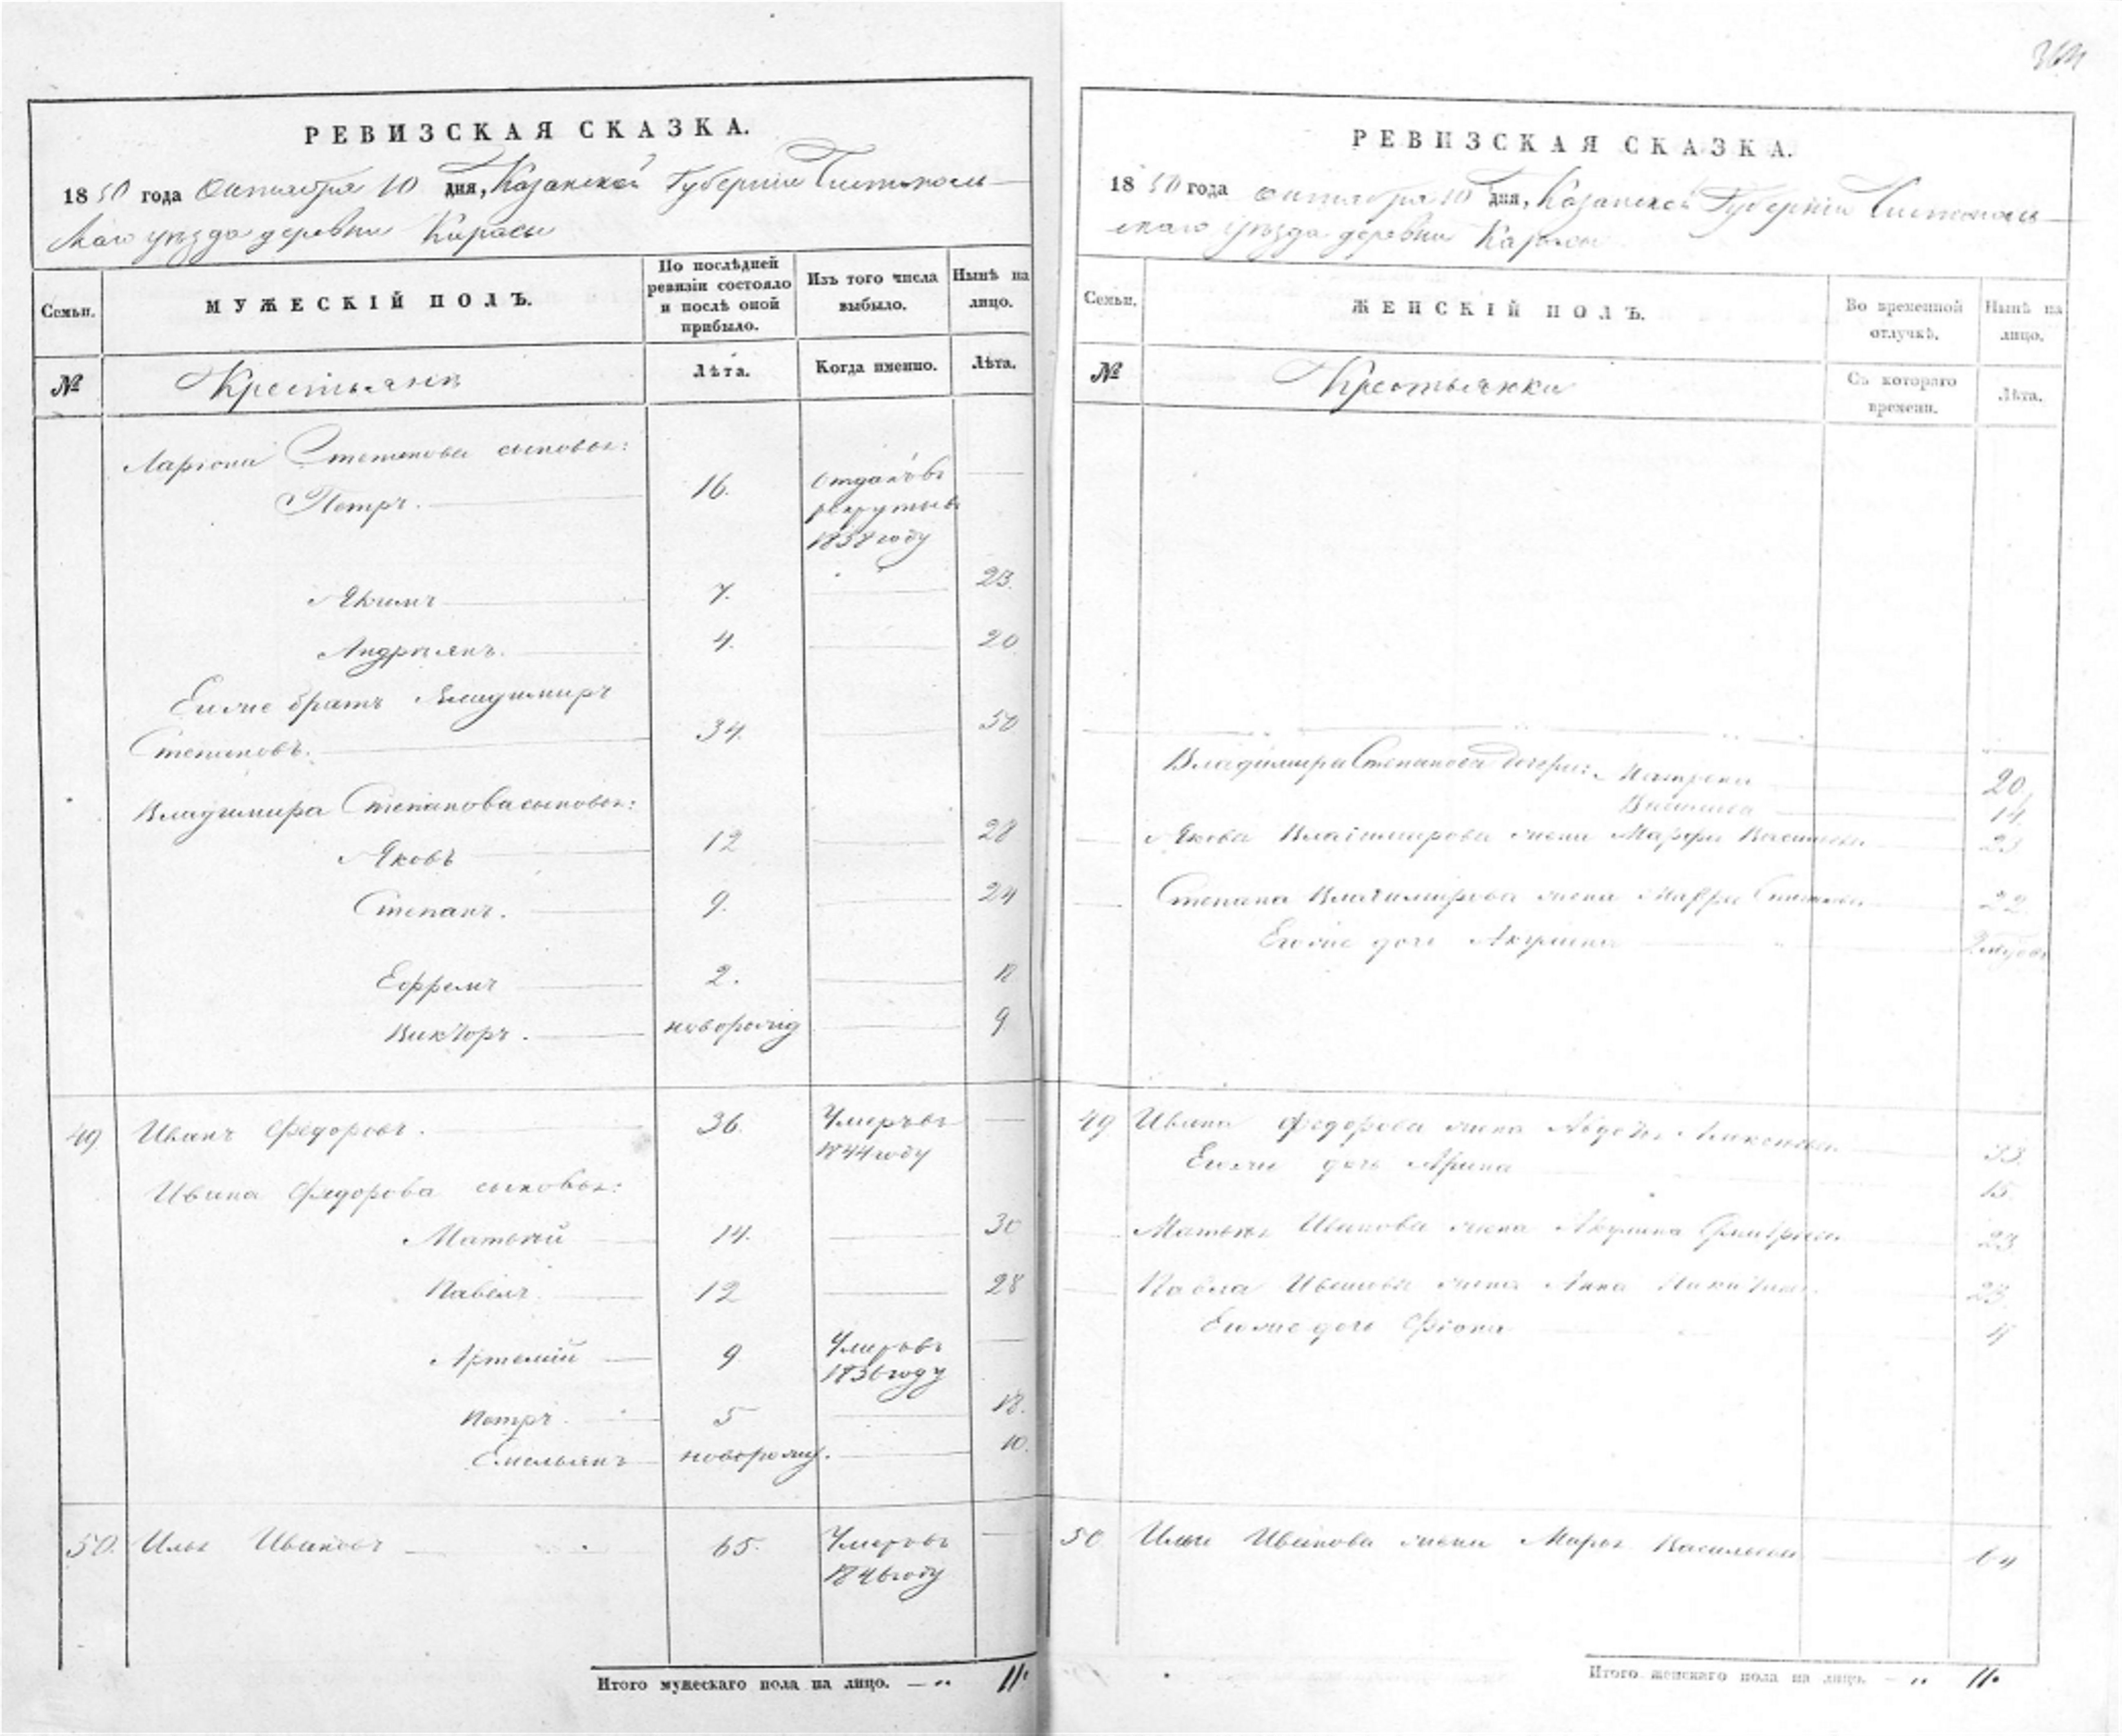 РЕВИЗСКАЯ СКАЗКА.
1850 года Октября 10 дня, Казанской Губернии Чистополь-
скаго уезда деревни Карасы
Семьи.
МУЖЕСКІЙ ПОЛЪ.
По послѣдней
ревизіи состояло
и послѣ оной
прибыло.
Изъ того числа
выбыло.
Нынѣ на
лицо.
№
Крестьяне
Лѣта.
Когда именно.
Лѣта.
Ларіона Степанова сыновья:
Петръ. 16. отданъ въ
рекруты въ
1838 году
Якимъ 7. 23.
Андреянъ. 4. 20
Ево же братъ Владимиръ
Степановъ. 34. 50
Владимира Степанова сыновья:
Яковъ 12 28
Степанъ. 9. 24
Ефремъ 2. 18
Викторъ. новорожд 9
49 Иванъ Федоровъ. 36. Умеръ въ
1844 году
Ивана Федорова сыновья:
Матвей 14. 30
Павелъ 12 28
Артемій 9 Умеръ въ
1836 году
Петръ. 5 18.
Емельянъ новорожд. 10.
50. Илья Ивановъ 65. Умеръ въ
1846 году
Итого мужескаго пола на лицо. — „ 11.
РЕВИЗСКАЯ СКАЗКА.
1850 года Октября 10 дня, Казанской Губернии Чистополь-
скаго уезда деревни Карасы
Семьи.
ЖЕНСКІЙ ПОЛЪ.
Во временной
отлучкѣ.
Нынѣ на
лицо.
№
Крестьянки
Съ котораго
времени.
Лѣта.
Владимира Степанова дочери: Матрена 20
14
Якова Владимирова жена Марфа Васильева 23
Степана Владимирова жена Мавра 22
Ево же дочь Акулина
49 Ивана Федорова жена Авдотья 53.
Ево же дочь Арина 15.
Матвея Иванова жена Акулина Дмитріева 23
Павла Иванова жена Анна Никитина 23.
Ево же дочь Фіона
50 Ильи Иванова жена Марья Васильева 64
Итого женскаго пола на лицо. — „ 11.